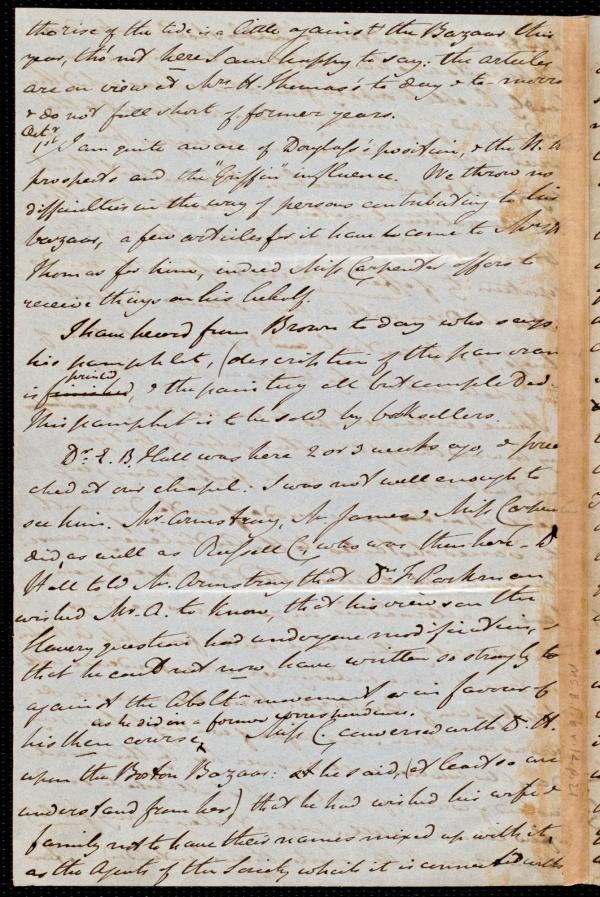 the rise of the tide is a little against the Bazaar this
year, tho' not here I am happy to say: the articles
are on view at Mrs H. Thomas's to day & to morro
& do not fall short of former years.
Octr
1st/ I am quite aware of Douglass's position, & the N. 
prospects and the "Griffin" influence. We throw no
difficulties in the way of persons contributing to his
bazaar, a few articles for it have to come to Mrs
Thomas for him, indeed Miss Carpenter offers to
receive things on his behalf.
I have heard from Brown to day who says
his pamphlet, (description of the panoram
is finished printed, & the painting all but completed.
This pamphlet is to be sold by booksellers.
Dr. E. B. Hall was here 2 or 3 weeks ago, & prea
ched at our chapel. I was not well enough to
see him. Mr. Armstrong, Mr. James & Miss Carpen
did, as well as Russell C, who was then here. D
Hall told Mr. Armstrong that Dr. F. Parkman
wished Mr. A. to know, that his views on the
Slavery question had undergone modification, &
that he could not now have written so strongly to
against the Abolt.n movement or in favour of
as he did on a former correspondence.
his then course, Miss C. conversed with Dr. H.
upon the Boston Bazaar: & he said, (at least so we
understand from her) that he had wished his wife &
family not to have their names mixed up with it,
as the Agents of the Society which it is connected with